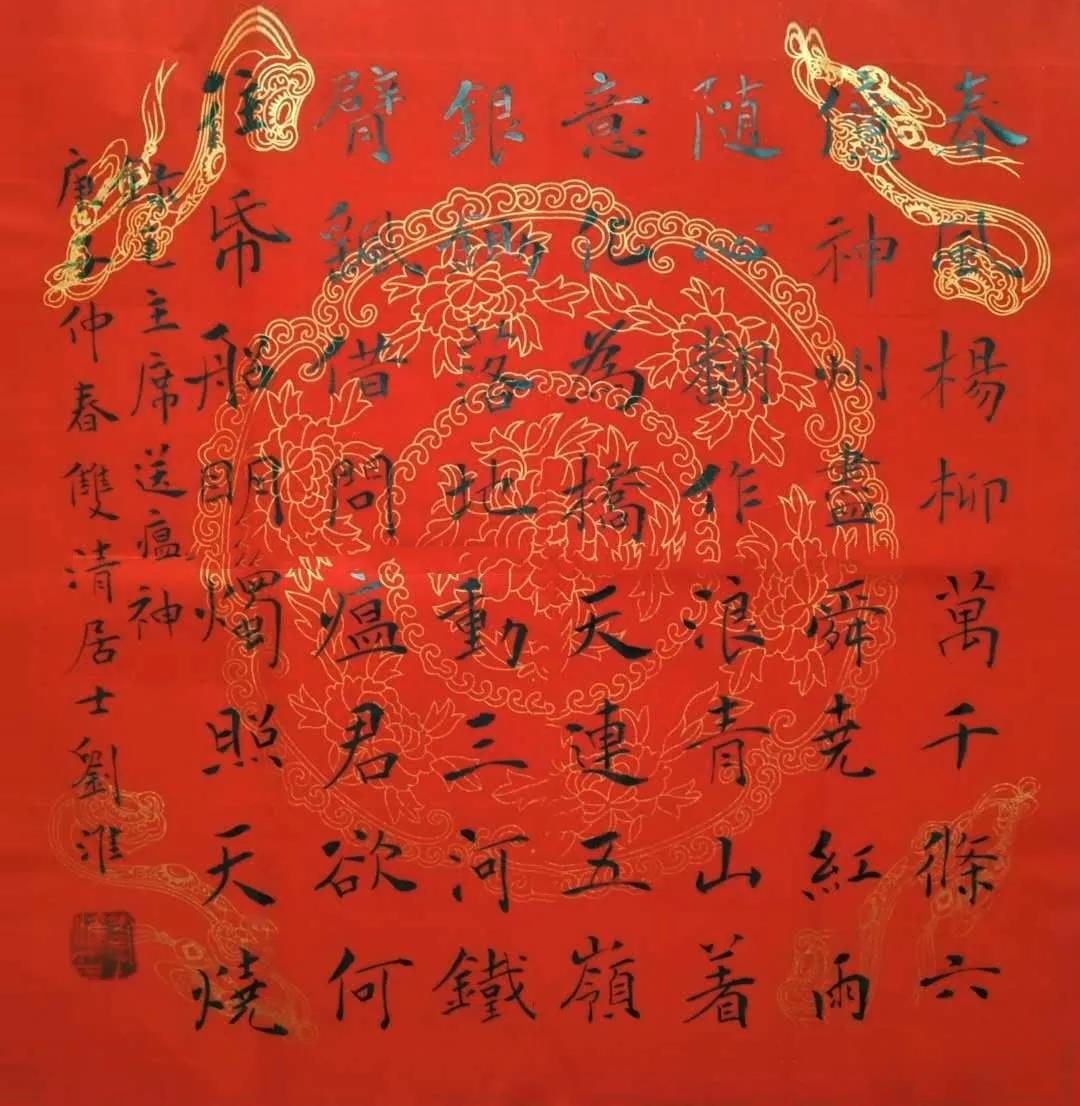 春風楊柳萬千條六
億神州盡舜堯紅雨
随心翻作浪青山着
意化為橋天連五嶺
銀鋤落地動三河鐵
臂借問瘟君欲何
往帋船明燭照天燒
録毛主席送瘟神
庚子仲春雙清居士劉淮